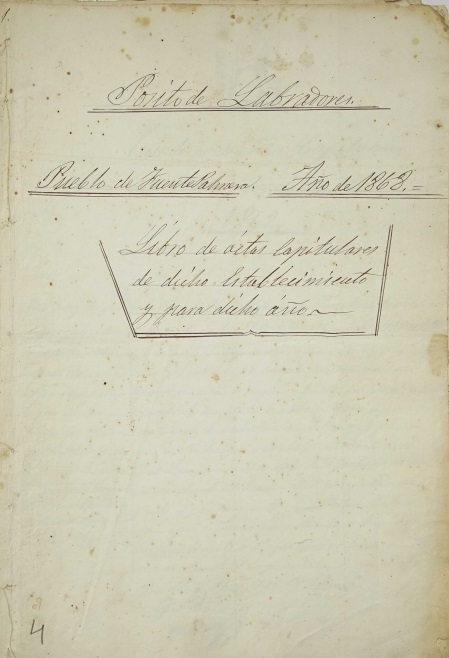 Posito de Labradores.
Pueblo de Fuente Palmera. Año de 1868.=
Libro de actas Capitulares
de dicho Establecimiento
y para dicho año
4